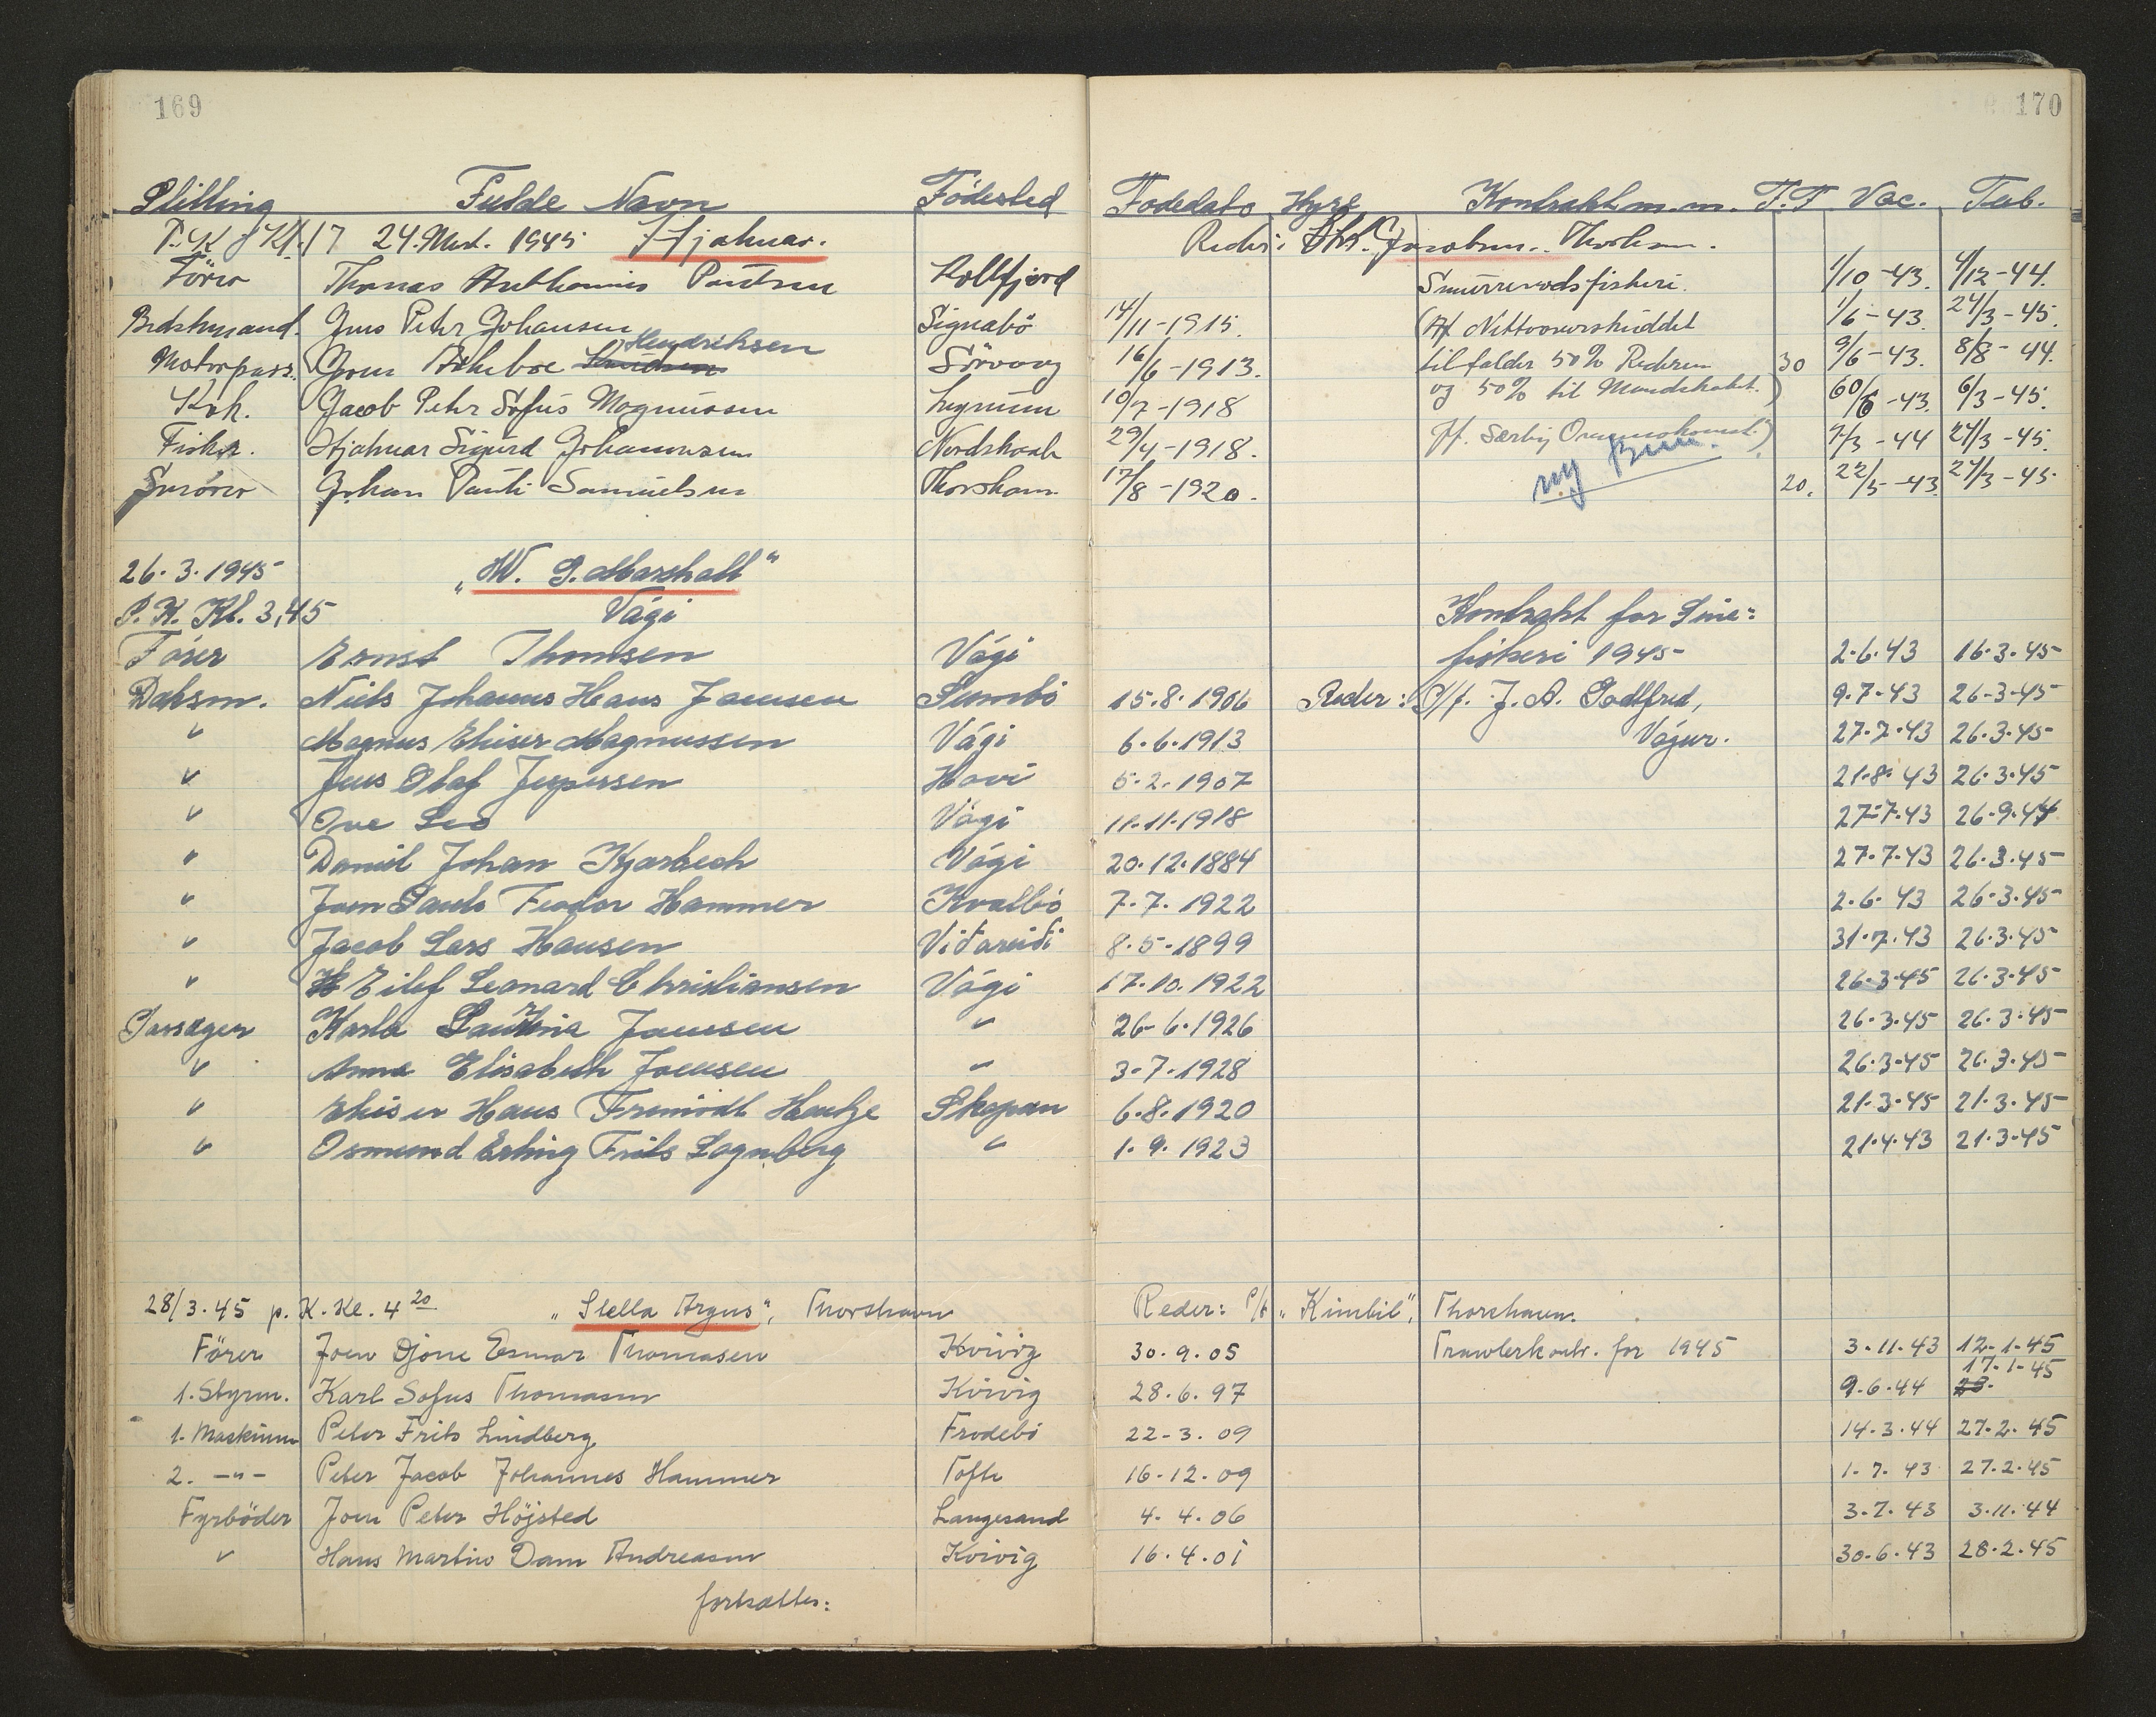 169
170
Stilling Fulde Navn Födested Födedato Hyre Kontrakt m.m. T.T Vac. Tub.
P.K. Kl. 17 24. Mrt. 1945 Hjalmar. Rederi Chr. Jacobsen. Thorshavn.
Förer Thomas Anthonius Poulsen Kollfjord Snurrevodsfiskeri. 1/10-43. 4/12-44.
Bedstmand. Jens Petur Johansen Signabö 14/11-1915. (Af Nettooverskuddet 1/6-43. 24/3-45.
Motorpass. Hendriksen Sörvaag 16/6-1913. tilfalder 50% Rederen 30 9/6-43. 8/8-44.
Kok. Jacob Petur Sofus Magnussen Lognum 10/7-1918 og 50% til Mandskabet.) 6/3-45.
Fisker. Hjalmar Sigurd Johannesen Nordskaale 29/4-1918. jf. Særlig Overenskomst.) 7/3-44 24/3-45.
Johan Pauli Samuelsen Thorshavn 17/8-1920. ny 20. 22/5-43. 24/3-45.
26.3.1945 "W. S. Marshall"
P.K. Kl. 3,45 Vági Kontrakt for Line=
Förer Ernst Thomsen Vági fiskeri 1945 2.6.43 16.3.45
Daksm. Niels Johannes Hans Joensen Sumbö 15.8.1906 Reder: P/f. J. A. Godtfred, 9.7.43 26-3-45
" Magnus Elieser Magnussen Vági 6.6.1913 Vágur. 27.7.43 26.3.45
" Jens Olaf Jespersen Hovi 5.2.1907 21.8.43 26.3.45
" Ove Leo Vági 11.11.1918 27.7.43 26.9.44
" Daniel Johan Kjærbech Vági 20.12.1884 27.7.43 26.3.45
" Joen Pauli Feodor Hammer Kvalbö 7.7.1922 2.6.43 26.3.45
" Jacob Lars Hansen Viðareiði 8.5.1899 31.7.43 26.3.45
" Eilif Leonard Christiansen Vági 17.10.1922 26.3.45 26.3.45
Passager Karla Joensen " 26-6.1926 26.3.45 26.3.45
" Anna Elisabeth Joensen " 3-7.1928 26.3.45 26.3.45
" Elieser Hans Fremodt Hentze Skopun 6.8.1920 21.3.45 21.3.45
" Osmund Erling Frits Sognberg " 1.9.1923 21.4.43 21.3.45
28/3.45 p. K. Kl. 4 20 "Stella Argus", Thorshavn Reder: P/f "Kimbil", Thorshavn.
Förer Joen Djóne Esmar Thomasen Kvivig 30.9.05 Trawlerkontr. for 1945 3.11.43 12-1-45
17.1-45
1. Styrm. Karl Sofus Thomasen Kvivig 28.6.97 9.6.44 28.
1. Maskinm Peter Frits Lindberg Frodebö 22-3.09 14.3.44 27.2.45
2. -"- Peter Jacob Johannes Hammer Tofte 16-12.09 1.7.43 27.2.45
Fyrböder Joen Peter Höjsted Langesand 4.4.06 3.7.43 3.11.44
" Hans Martin Dam Andreasen Kvivig 16.4.01 30.6.43 28.2.45
fortsættes: